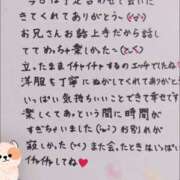 きてくれてありがとう〜(^^)
お兄さんお話上手だから話し
てて、めっちゃ楽しかった〜
立ったままイチャイチャするのエッチでしたね
洋服を丁寧にぬがしてくれてありがとう
いっぱい気持ちいいことできて幸せです
楽しくてあっという間に時間が
すぎちゃいました お別れが
寂しかった また会ったときはいっぱい
イチャイチャしてね♥